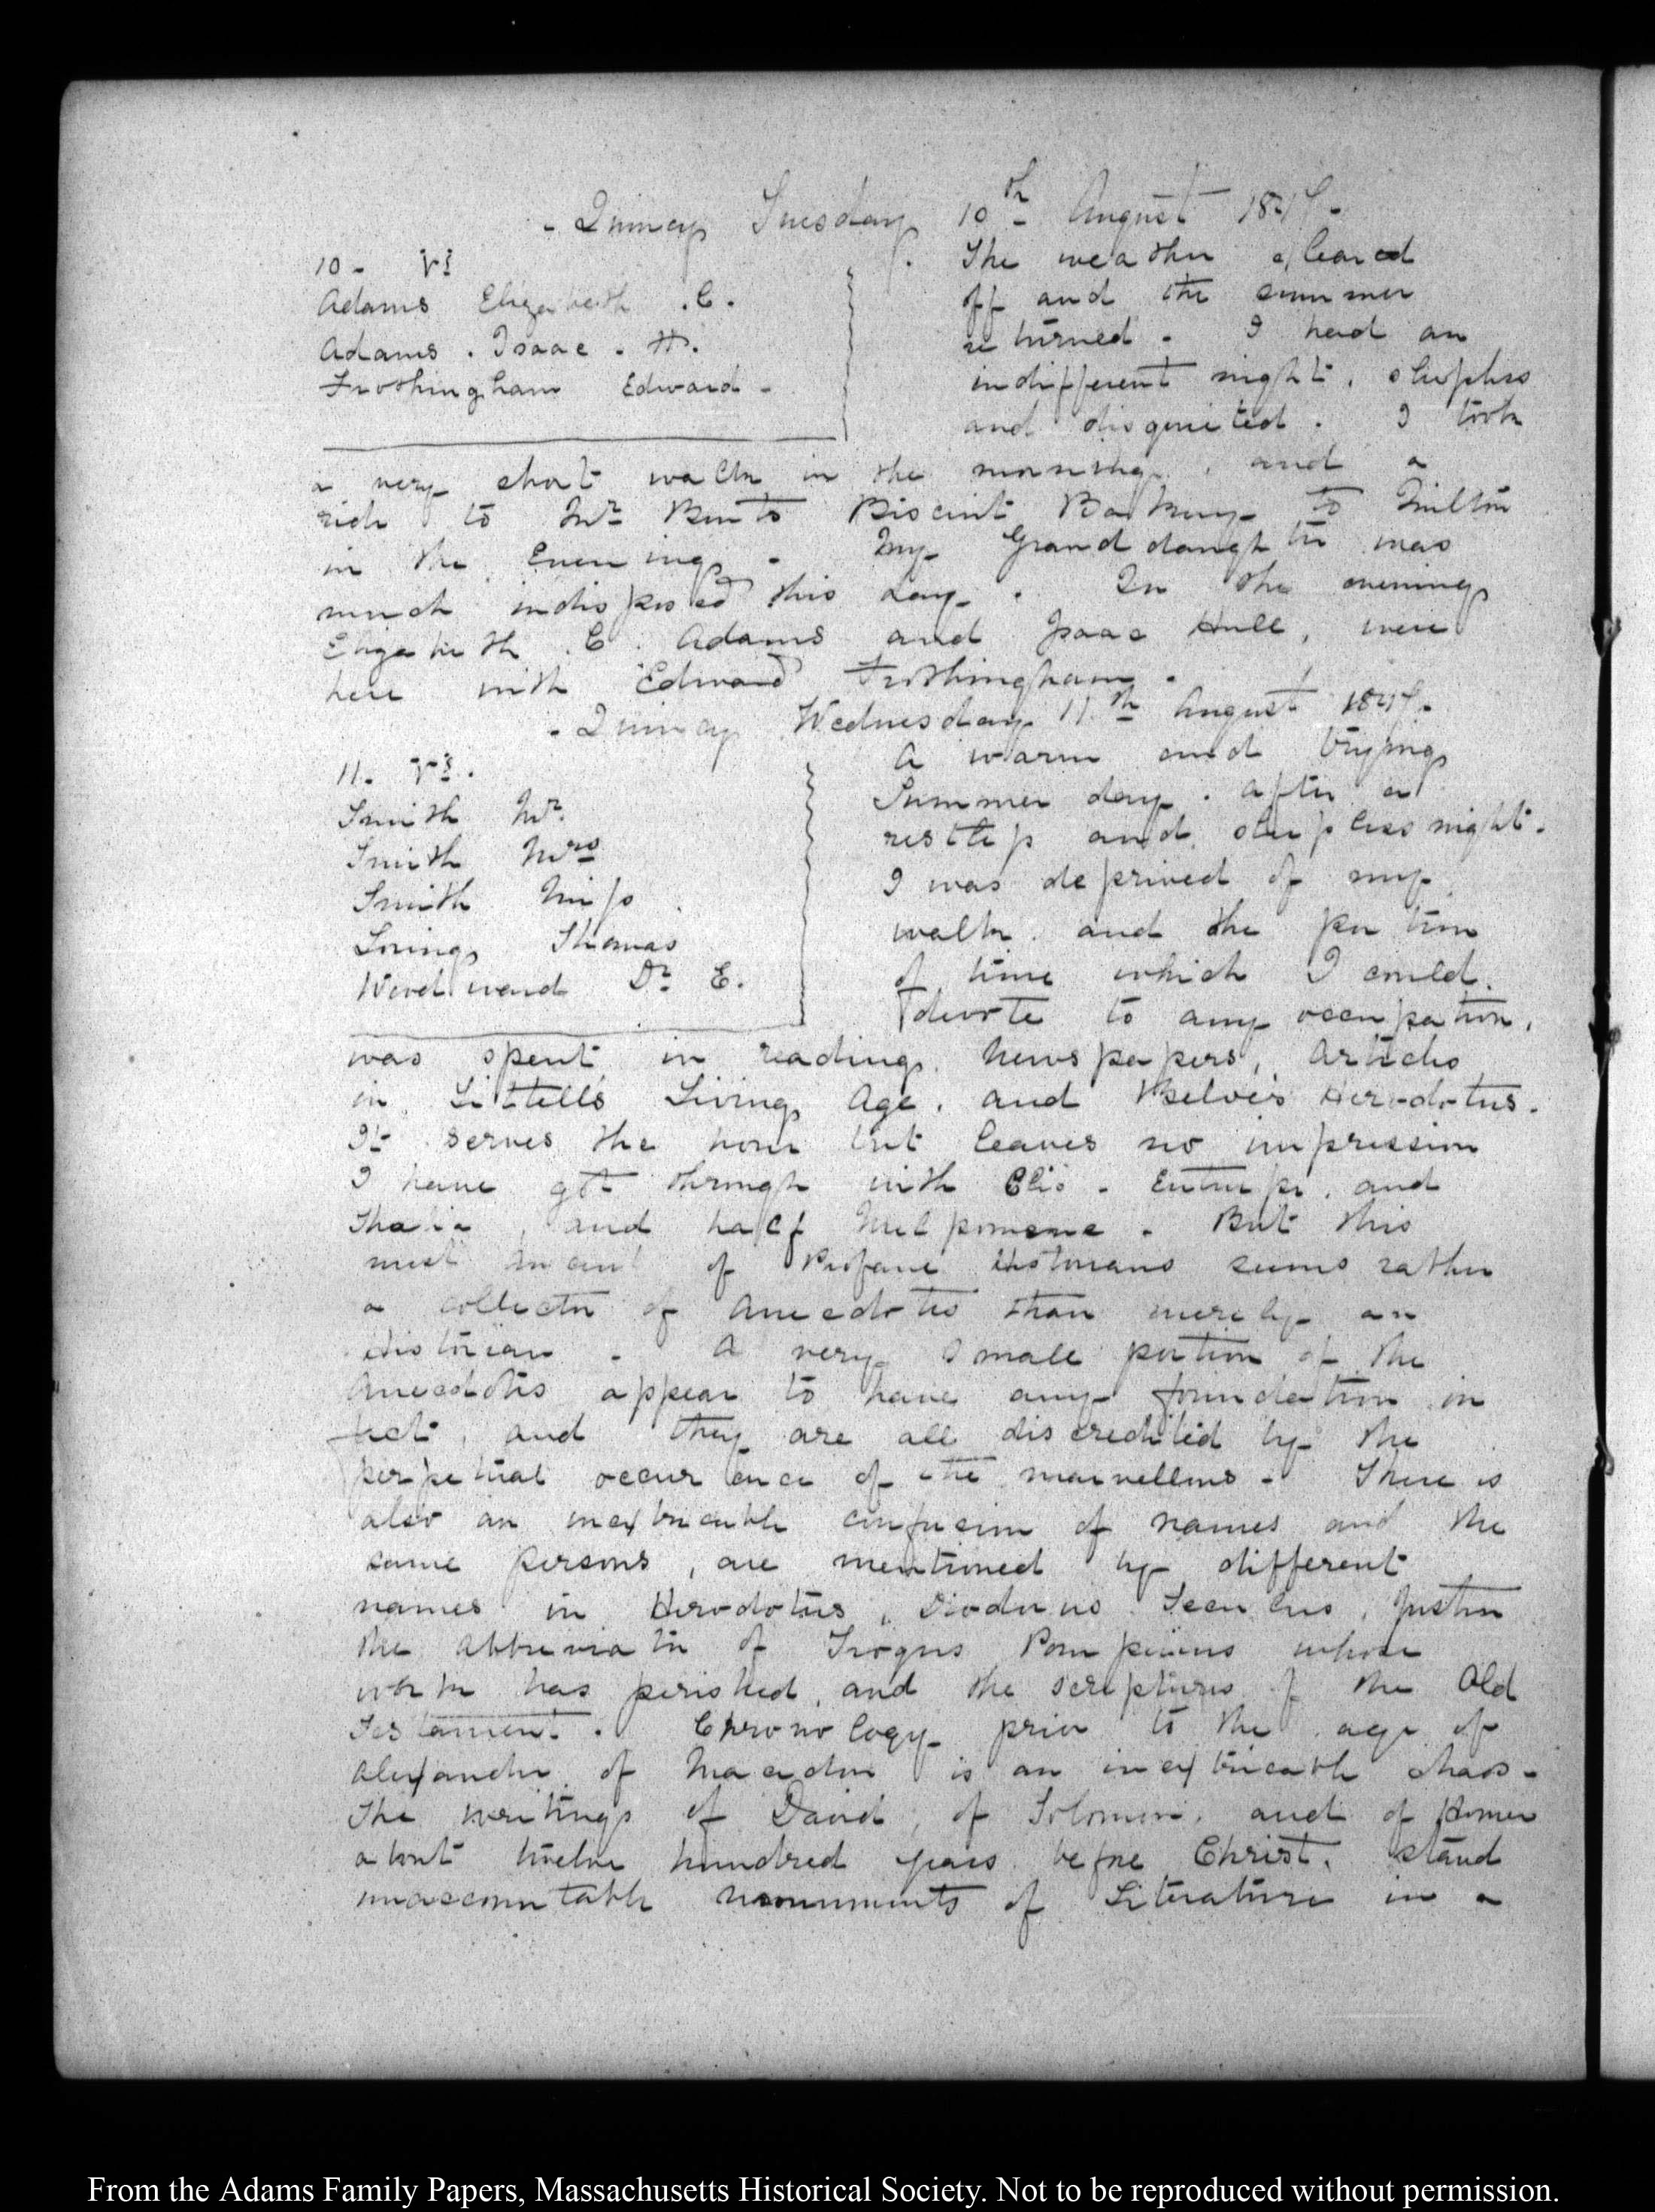 - Quincy Tuesday 10th August 1847 -
10 - VI
Adams Elizabeth . C.
Adams . Isaac . H.
Frothingham Edward -
The weather cleared
off and the summer
returned - I had an
indifferent night, sleepless
and disquieted . I took
a very short walk in the morning, and a
ride to Mr Bents Biscuit Bakery to Milton
in the Evening - My Grand daughter was
much indisposed this day . In the evening
Elizabeth . C . Adams and Isaac Hull, were
here with Edward Frothingham .
- Quincy Wednesday 11th August 1847 -
11. VI.
Smith Mr
Smith Mrs
Smith Miss
Loring Thomas
Woodward Dr E.
A warm and trying
Summer day . After a
restless and sleepless night .
I was deprived of my
walk . and the portion
of time which I could
devote to any occupation,
was spent in reading Newspapers, Articles
in Littells Living Age, and Beloe's Herodotus.
It serves the hour but leaves no impression
I have got through with Clio - Euterpe, and
Thalia, and half Melpomene - But this
most ancient of Profane Historians seems rather
a collector of anecdotes than merely an
Historian - A very small portion of the
Anecdotes appear to have any foundation in
fact, and they are all discredited by the
perpetual occurrence of the marvellous - There is
also an inextricable confusion of names and the
same persons, are mentioned by different
names in Herodotus, Diodorus Siculus, Justin
the abbreviator of Trogus Pompeius whose
work has perished, and the scriptures of the Old
Testament . Chronology prior to the age of
Alexander of Macedon is an inextricable chaos -
The writings of David, of Solomon, and of Homer
about twelve hundred years before Christ, stand
unaccountable monuments of Literature in a
From the Adams Family Papers, Massachusetts Historical Society. Not to be reproduced without permission.